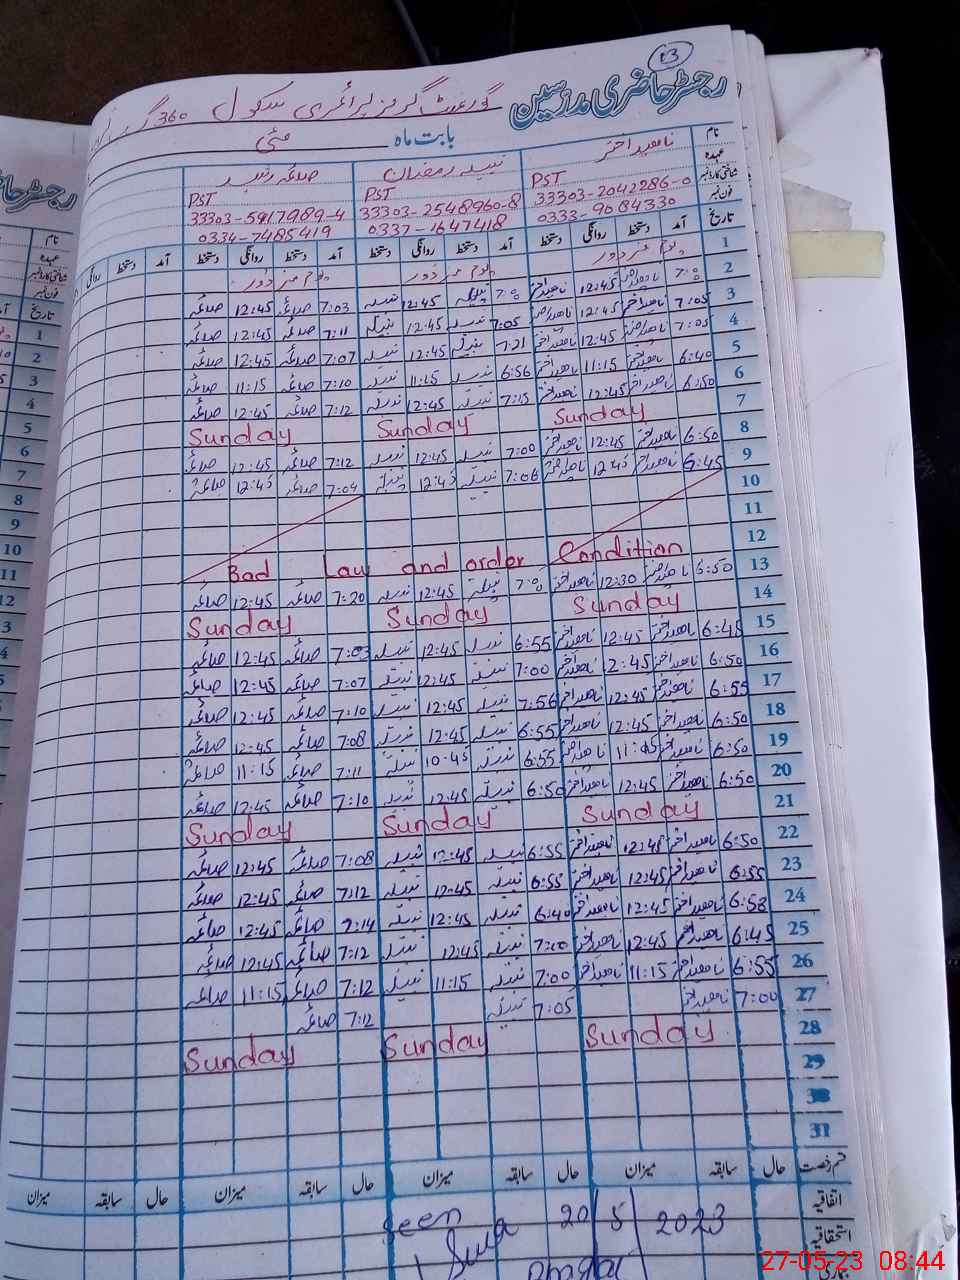 13
رجسٹر حاضری مدرسین
گورنمنٹ گرلز پرائمری سکول 360 گ ب
بابت ماہ مئی
نام ناھید اختر نبیلہ رمضان صائمہ رشید
عہدہ PST PST PST
شناختی کارڈ نمبر 33303-2042286-0 33303-2548960-8 33303-5917989-4
فون نمبر 0333-9084330 0337-1647418 0334-7485419
تاریخ آمد دستخط روانگی دستخط آمد دستخط روانگی دستخط آمد دستخط روانگی دستخط آمد دستخط روانگی
1 یوم مزدور یوم مزدور یوم مزدور
2 7:0 ناھید اختر 12:45 ناھید اختر 7:0 نبیلہ 12:45 نبیلہ 7:03 صائمہ 12:45 صائمہ
3 7:05 ناھید اختر 12:45 ناھید اختر 7:05 نبیلہ 12:45 نبیلہ 7:11 صائمہ 12:45 صائمہ
4 7:05 ناھید اختر 12:45 ناھید اختر 7:21 نبیلہ 12:45 نبیلہ 7:07 صائمہ 12:45 صائمہ
5 6:40 ناھید اختر 11:15 ناھید اختر 6:56 نبیلہ 11:15 نبیلہ 7:10 صائمہ 11:15 صائمہ
6 6:50 ناھید اختر 12:45 ناھید اختر 7:15 نبیلہ 12:45 نبیلہ 7:12 صائمہ 12:45 صائمہ
7 Sunday Sunday Sunday
8 6:50 ناھید اختر 12:45 ناھید اختر 7:00 نبیلہ 12:45 نبیلہ 7:12 صائمہ 12:45 صائمہ
9 6:45 ناھید اختر 12:45 ناھید اختر 7:06 نبیلہ 12:45 نبیلہ 7:09 صائمہ 12:45 صائمہ
10
11
12 Bad Law and order Condition
13 6:50 ناھید اختر 12:30 ناھید اختر 7:0 نبیلہ 12:45 نبیلہ 7:20 صائمہ 12:45 صائمہ
14 Sunday Sunday Sunday
15 6:45 ناھید اختر 12:45 ناھید اختر 6:55 نبیلہ 12:45 نبیلہ 7:03 صائمہ 12:45 صائمہ
16 6:50 ناھید اختر 2:45 ناھید اختر 7:00 نبیلہ 12:45 نبیلہ 7:07 صائمہ 12:45 صائمہ
17 6:55 ناھید اختر 12:45 ناھید اختر 7:56 نبیلہ 12:45 نبیلہ 7:10 صائمہ 12:45 صائمہ
18 6:50 ناھید اختر 12:45 ناھید اختر 6:55 نبیلہ 12:45 نبیلہ 7:08 صائمہ 12:45 صائمہ
19 6:50 ناھید اختر 11:45 ناھید اختر 6:55 نبیلہ 10:45 نبیلہ 7:11 صائمہ 11:15 صائمہ
20 6:50 ناھید اختر 12:45 ناھید اختر 6:50 نبیلہ 12:45 نبیلہ 7:10 صائمہ 12:45 صائمہ
21 Sunday Sunday Sunday
22 6:50 ناھید اختر 12:45 ناھید اختر 6:55 نبیلہ 12:45 نبیلہ 7:08 صائمہ 12:45 صائمہ
23 6:55 ناھید اختر 12:45 ناھید اختر 6:55 نبیلہ 12:45 نبیلہ 7:12 صائمہ 12:45 صائمہ
24 6:58 ناھید اختر 12:45 ناھید اختر 6:40 نبیلہ 12:45 نبیلہ 7:14 صائمہ 12:45 صائمہ
25 6:45 ناھید اختر 12:45 ناھید اختر 7:00 نبیلہ 12:45 نبیلہ 7:12 صائمہ 12:45 صائمہ
26 6:55 ناھید اختر 11:15 ناھید اختر 7:00 نبیلہ 11:15 نبیلہ 7:12 صائمہ 11:15 صائمہ
27 7:00 ناھید اختر 7:05 نبیلہ 7:12 صائمہ
28 Sunday Sunday Sunday
29
30
31
قسم رخصت حال سابقہ میزان حال سابقہ میزان حال سابقہ میزان حال سابقہ میزان
اتفاقیہ
استحقاقیہ
Seen 20/5/2023
27-05-23 08:44